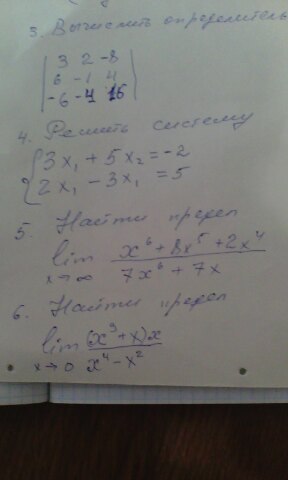 3. Вычислить определитель
| 3 2 -8 |
| 6 -1 4 |
| -6 -4 16 |
4. Решить систему
{ 3x₁ + 5x₂ = -2
{ 2x₁ - 3x₁ = 5
5. Найти предел
lim x→∞ (x⁶ + 8x⁵ + 2x⁴) / (7x⁶ + 7x)
6. Найти предел
lim x→0 (x³ + x)x / (x⁴ - x²)